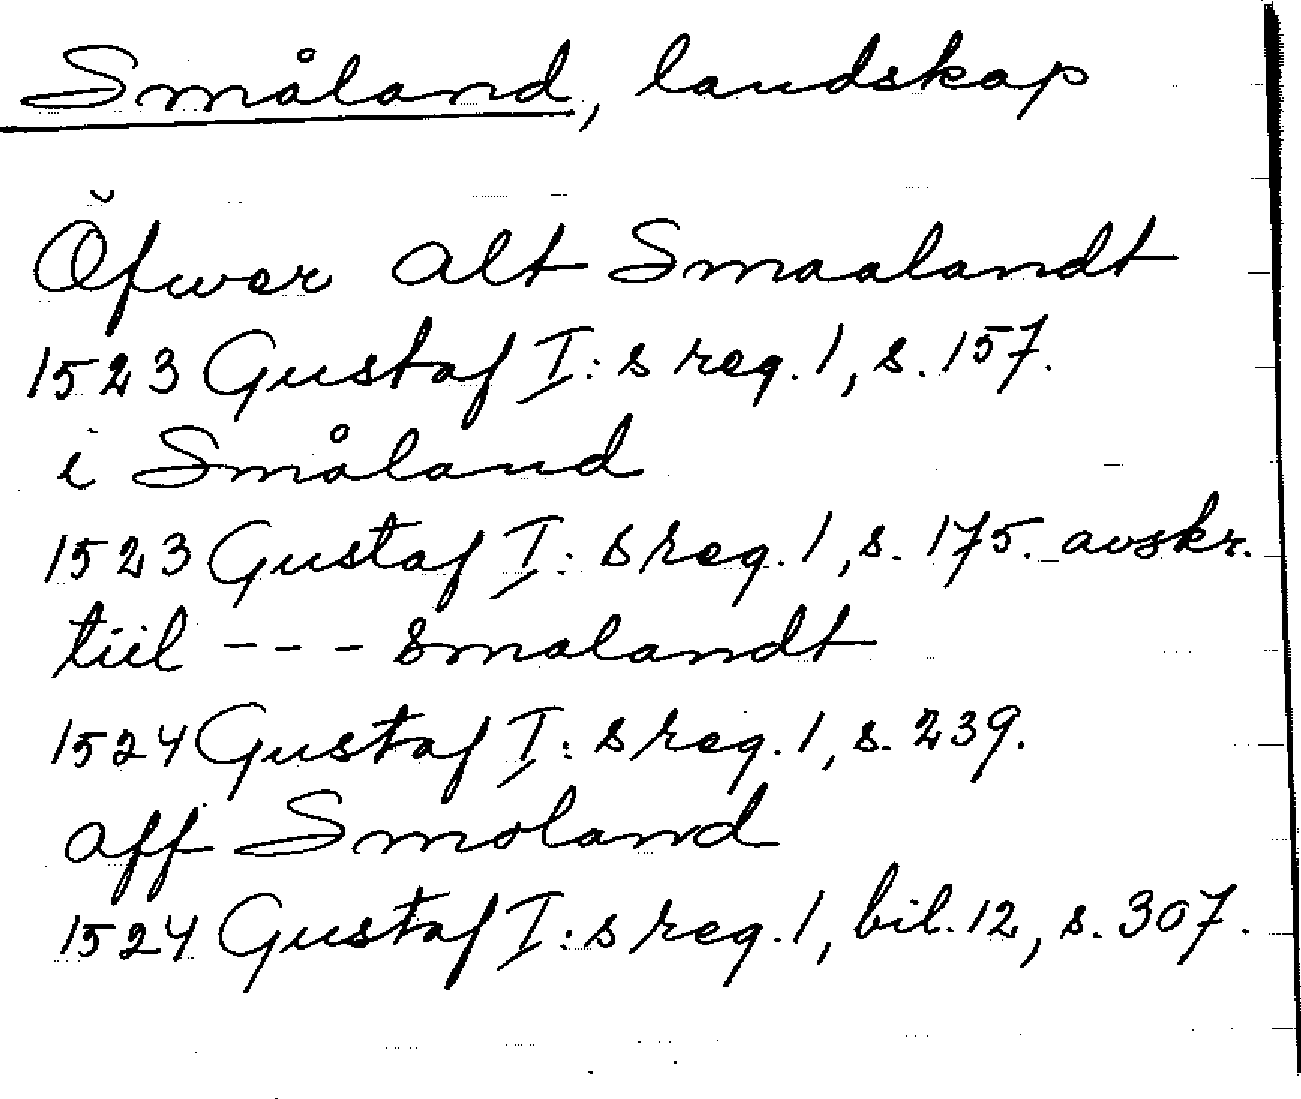 Småland, landskap
Öfwer alt Smaalandt
1523 Gustaf I:s reg. 1, s. 157.
i Småland
1523 Gustaf I:s reg. 1, s. 175. avskr.
tiil --- Smalandt
1524 Gustaf I:s reg. 1, s. 239.
aff Smoland
1524 Gustaf I:s reg. 1, bil. 12, s. 307.